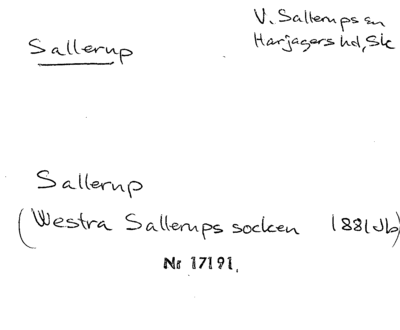 Sallerup
V. Sallerups sn
Harjagers hd, Sk
Sallerup
(Westra Sallerups socken 1881 Jb)
Nr 17191.